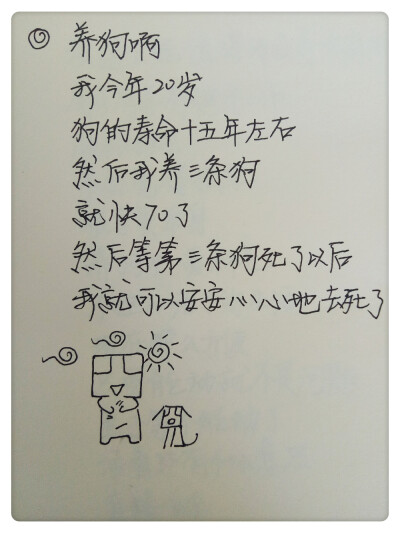 养狗啊
我今年20岁
狗的寿命十五年左右
然后我养三条狗
就快70了
然后等第三条狗死了以后
我就可以安安心心地去死了